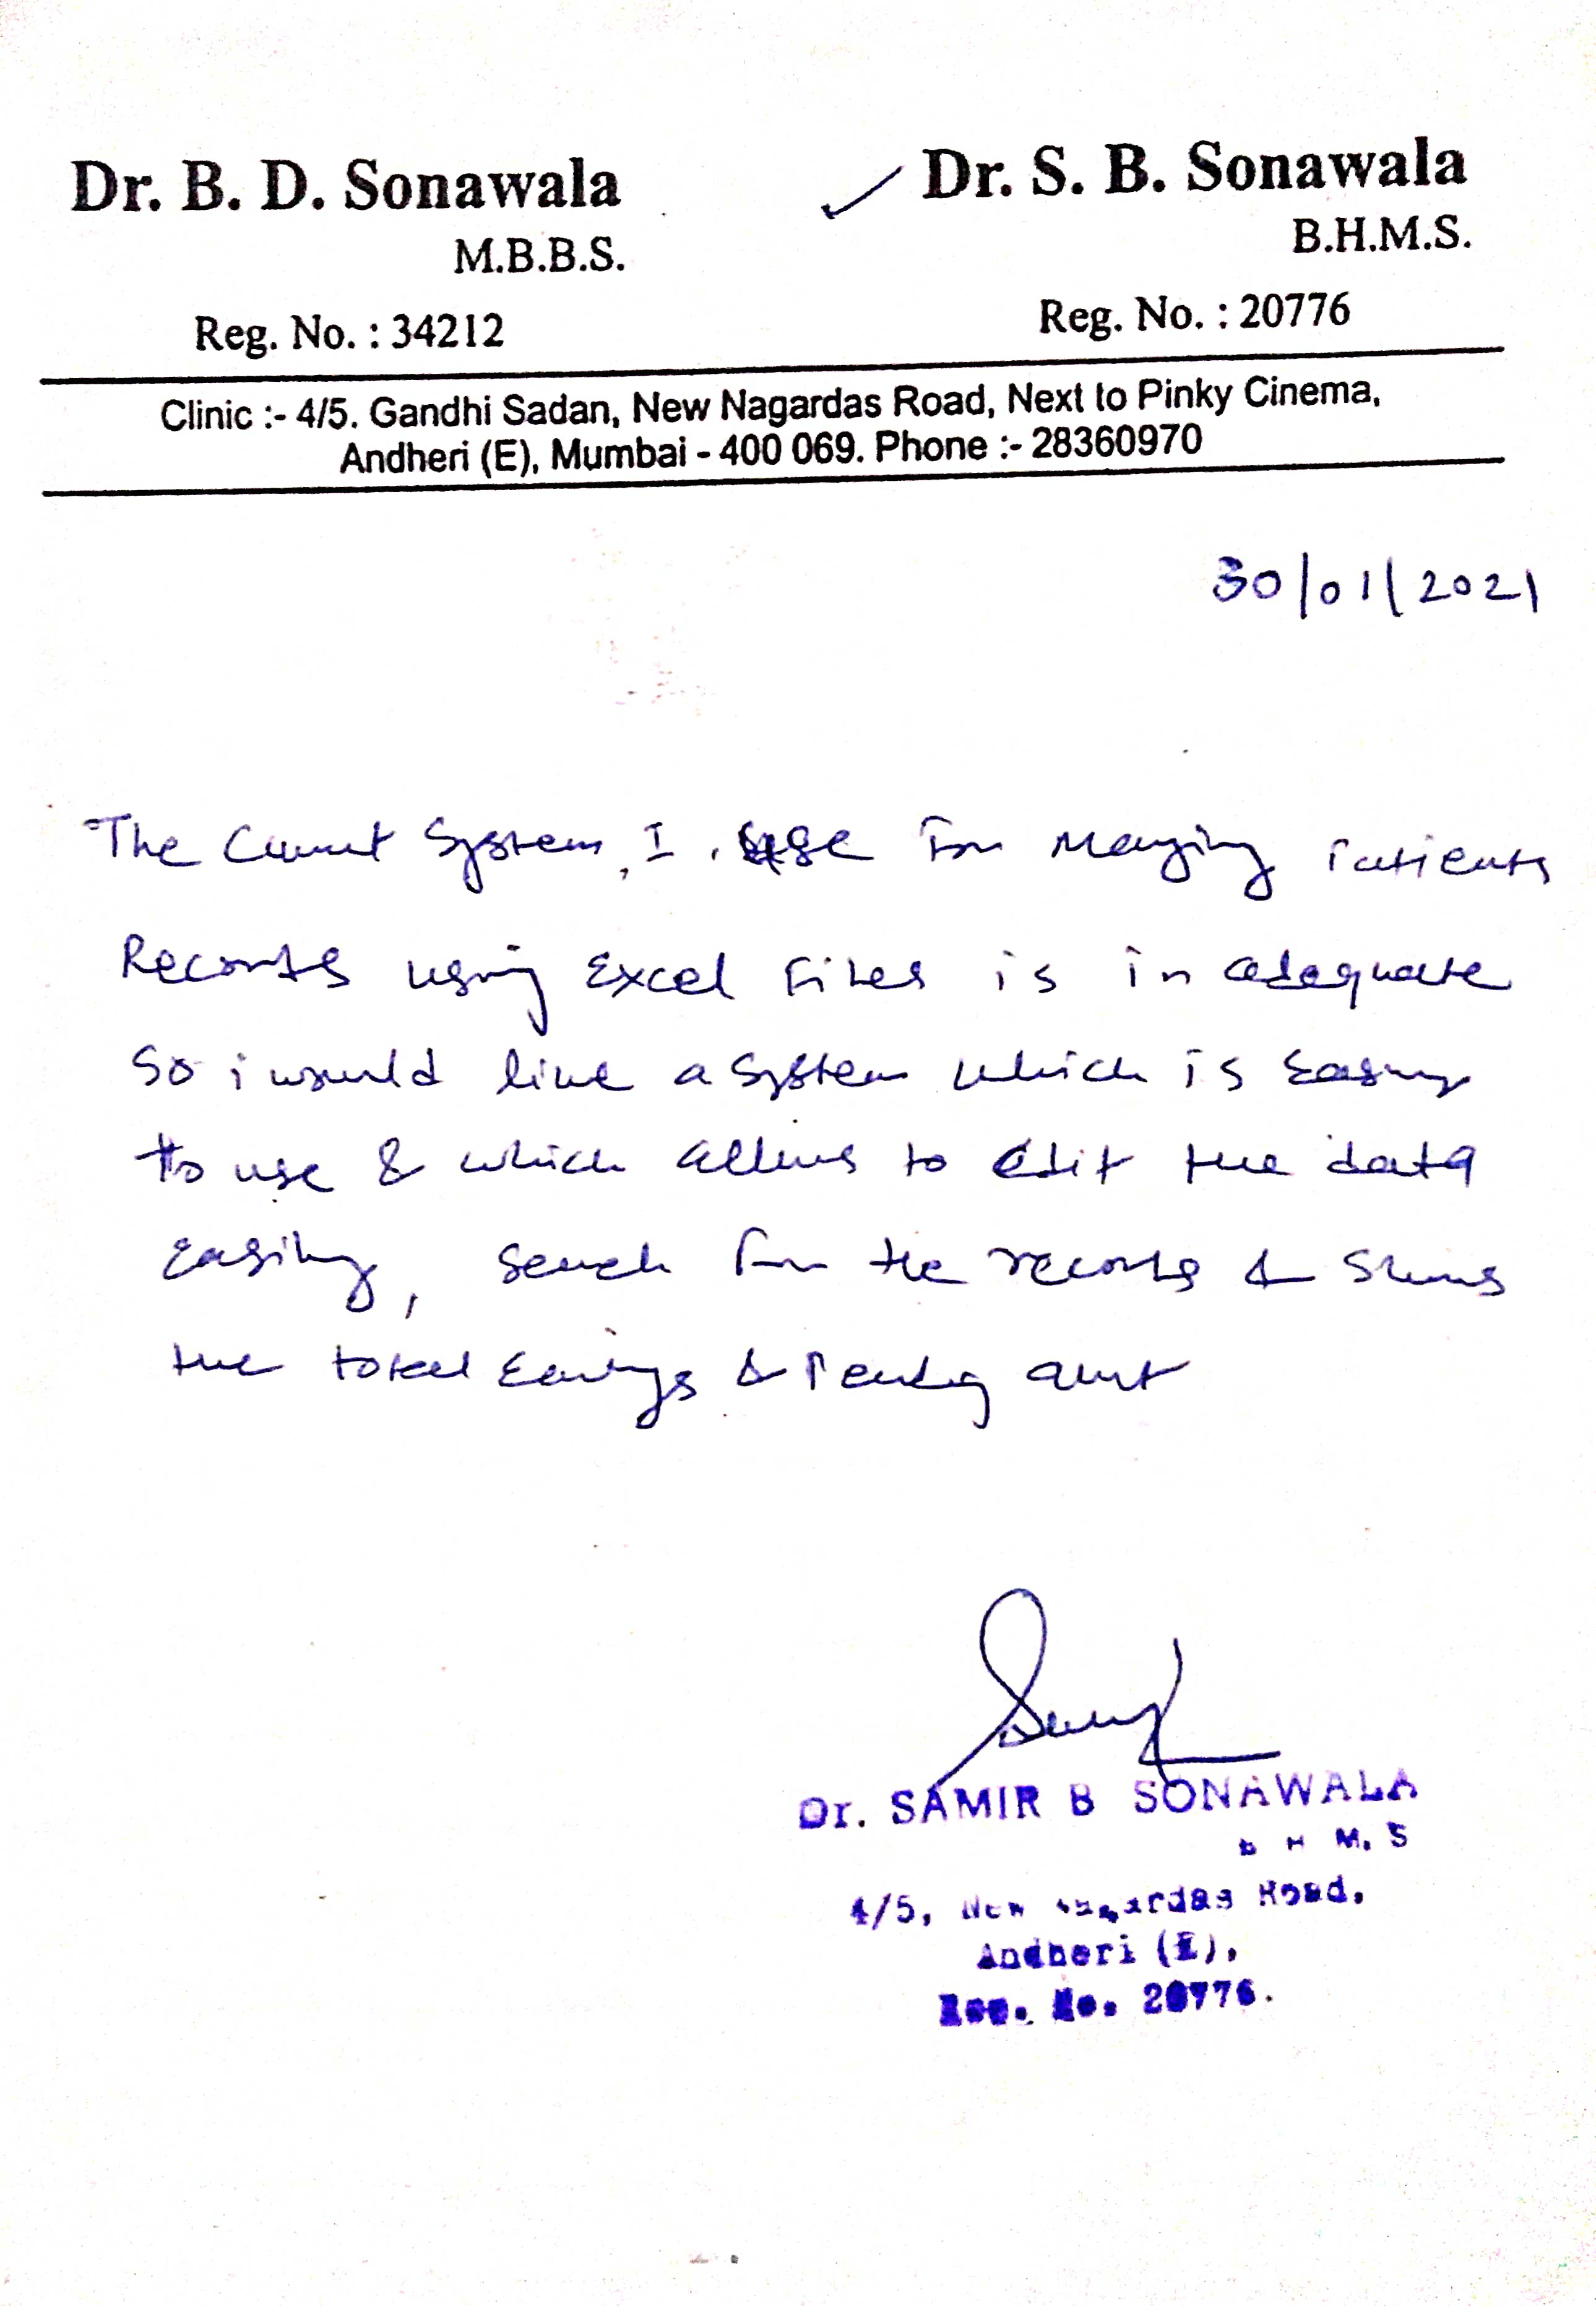 Dr. B. D. Sonawala
M.B.B.S.
Reg. No. : 34212
Dr. S. B. Sonawala
B.H.M.S.
Reg. No. : 20776
Clinic :- 4/5. Gandhi Sadan, New Nagardas Road, Next to Pinky Cinema,
Andheri (E), Mumbai - 400 069. Phone :- 28360970
30/01/2021
The Current System, I use For Managing Patients
Records using Excel Files is in adequate
So i would like a System which is Easy
to use & which allows to Edit the data
Easily, Search for the records & Shows
the total Earnings & Pending amt
Dr. SAMIR B SONAWALA
B H M. S
4/5, New Nagardas Road,
Andheri (E),
Reg. No. 20776.